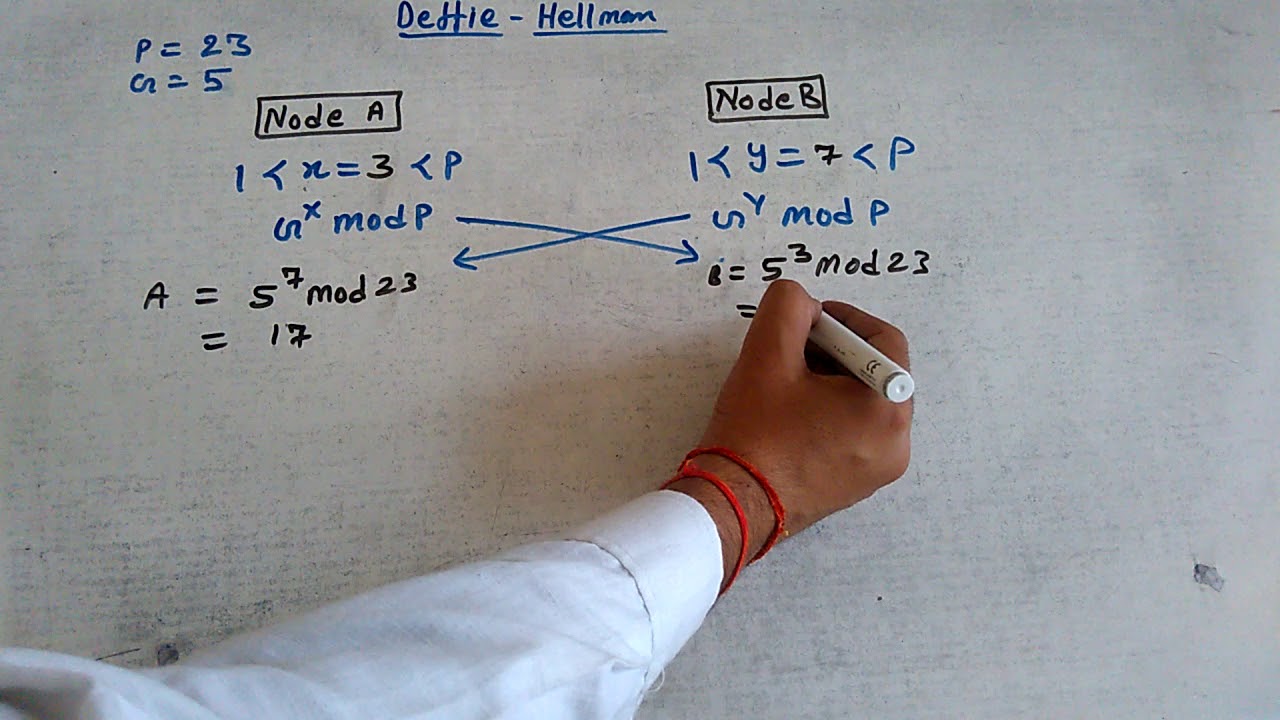 Deffie - Hellman
P = 23
G = 5
Node A
Node B
1 < x = 3 < P
1 < y = 7 < P
G^x mod P
G^y mod P
A = 5^7 mod 23
= 17
B = 5^3 mod 23
=
CE